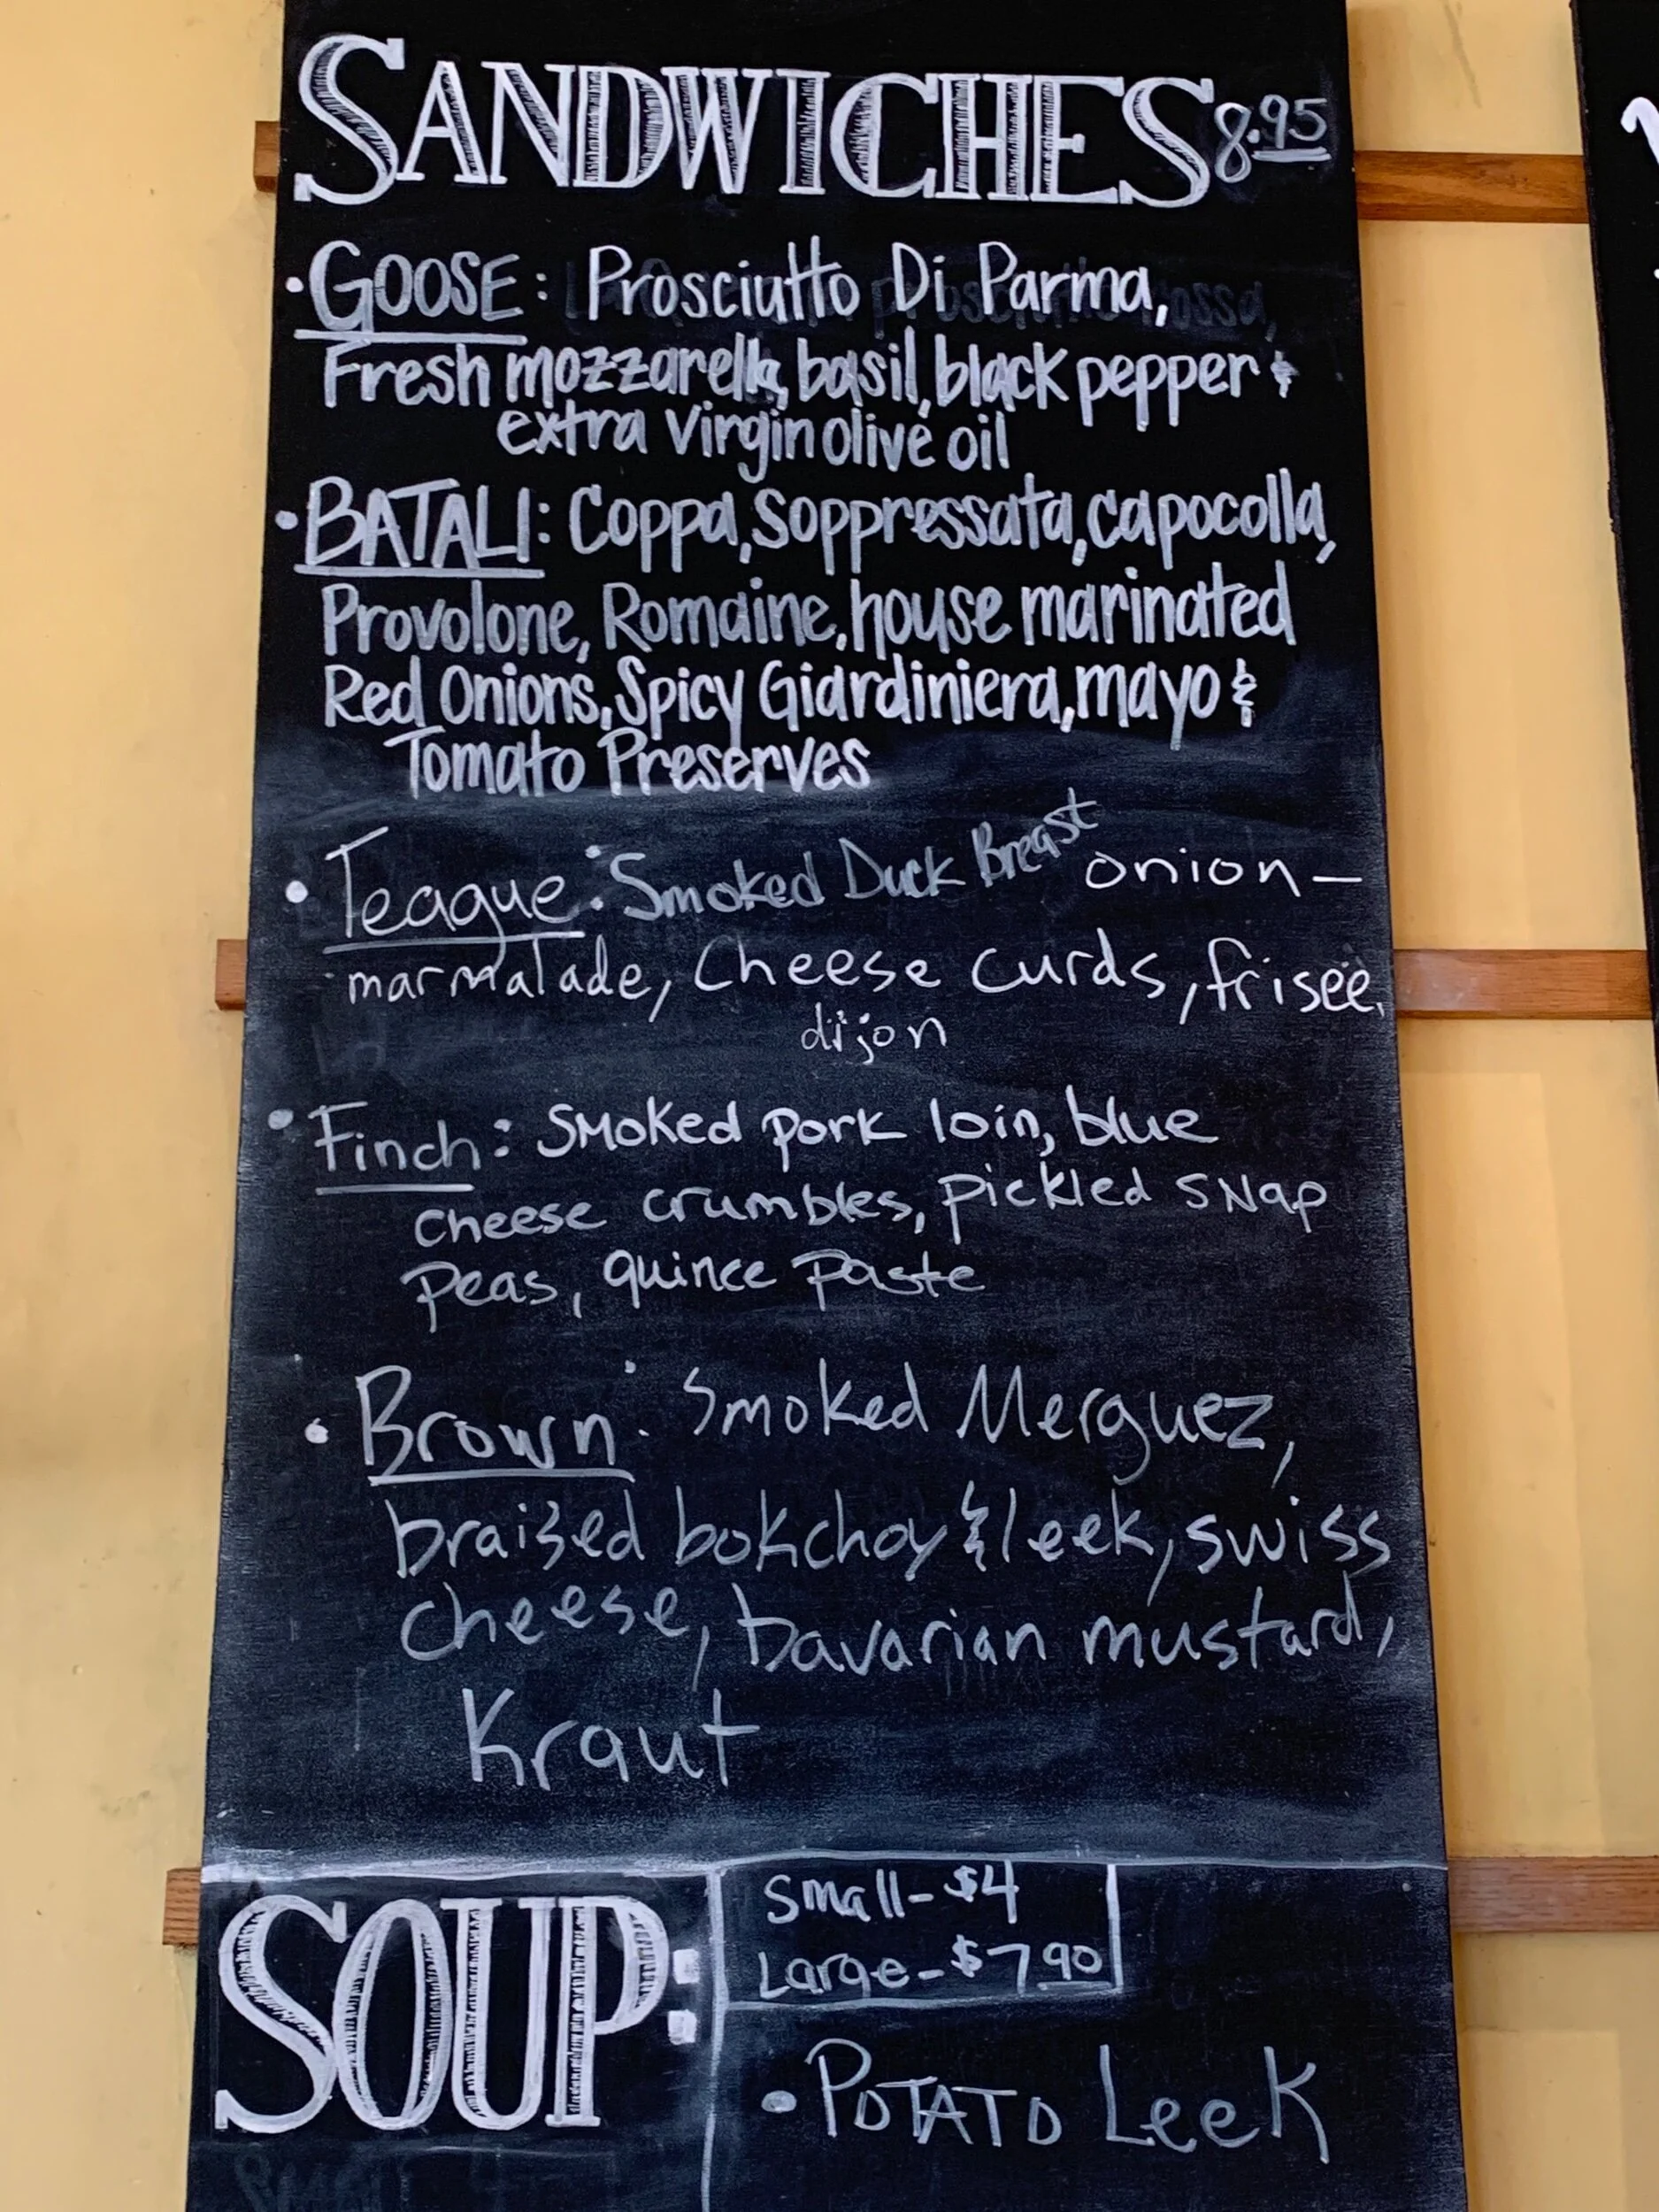 SANDWICHES 8.95
• GOOSE: Prosciutto Di Parma,
Fresh mozzarella, basil, black pepper &
extra virgin olive oil
• BATALI: Coppa, Soppressata, capocolla,
Provolone, Romaine, house marinated
Red Onions, Spicy Giardiniera, mayo &
Tomato Preserves
• Teague: Smoked Duck Breast onion-
marmalade, Cheese curds, frisée,
dijon
• Finch: Smoked pork loin, blue
cheese crumbles, pickled snap
peas, quince paste
• Brown: Smoked Merguez,
braized bokchoy & leek, swiss
cheese, bavarian mustard,
Kraut
SOUP:
Small- $4
Large- $7.90
• POTATO LeeK